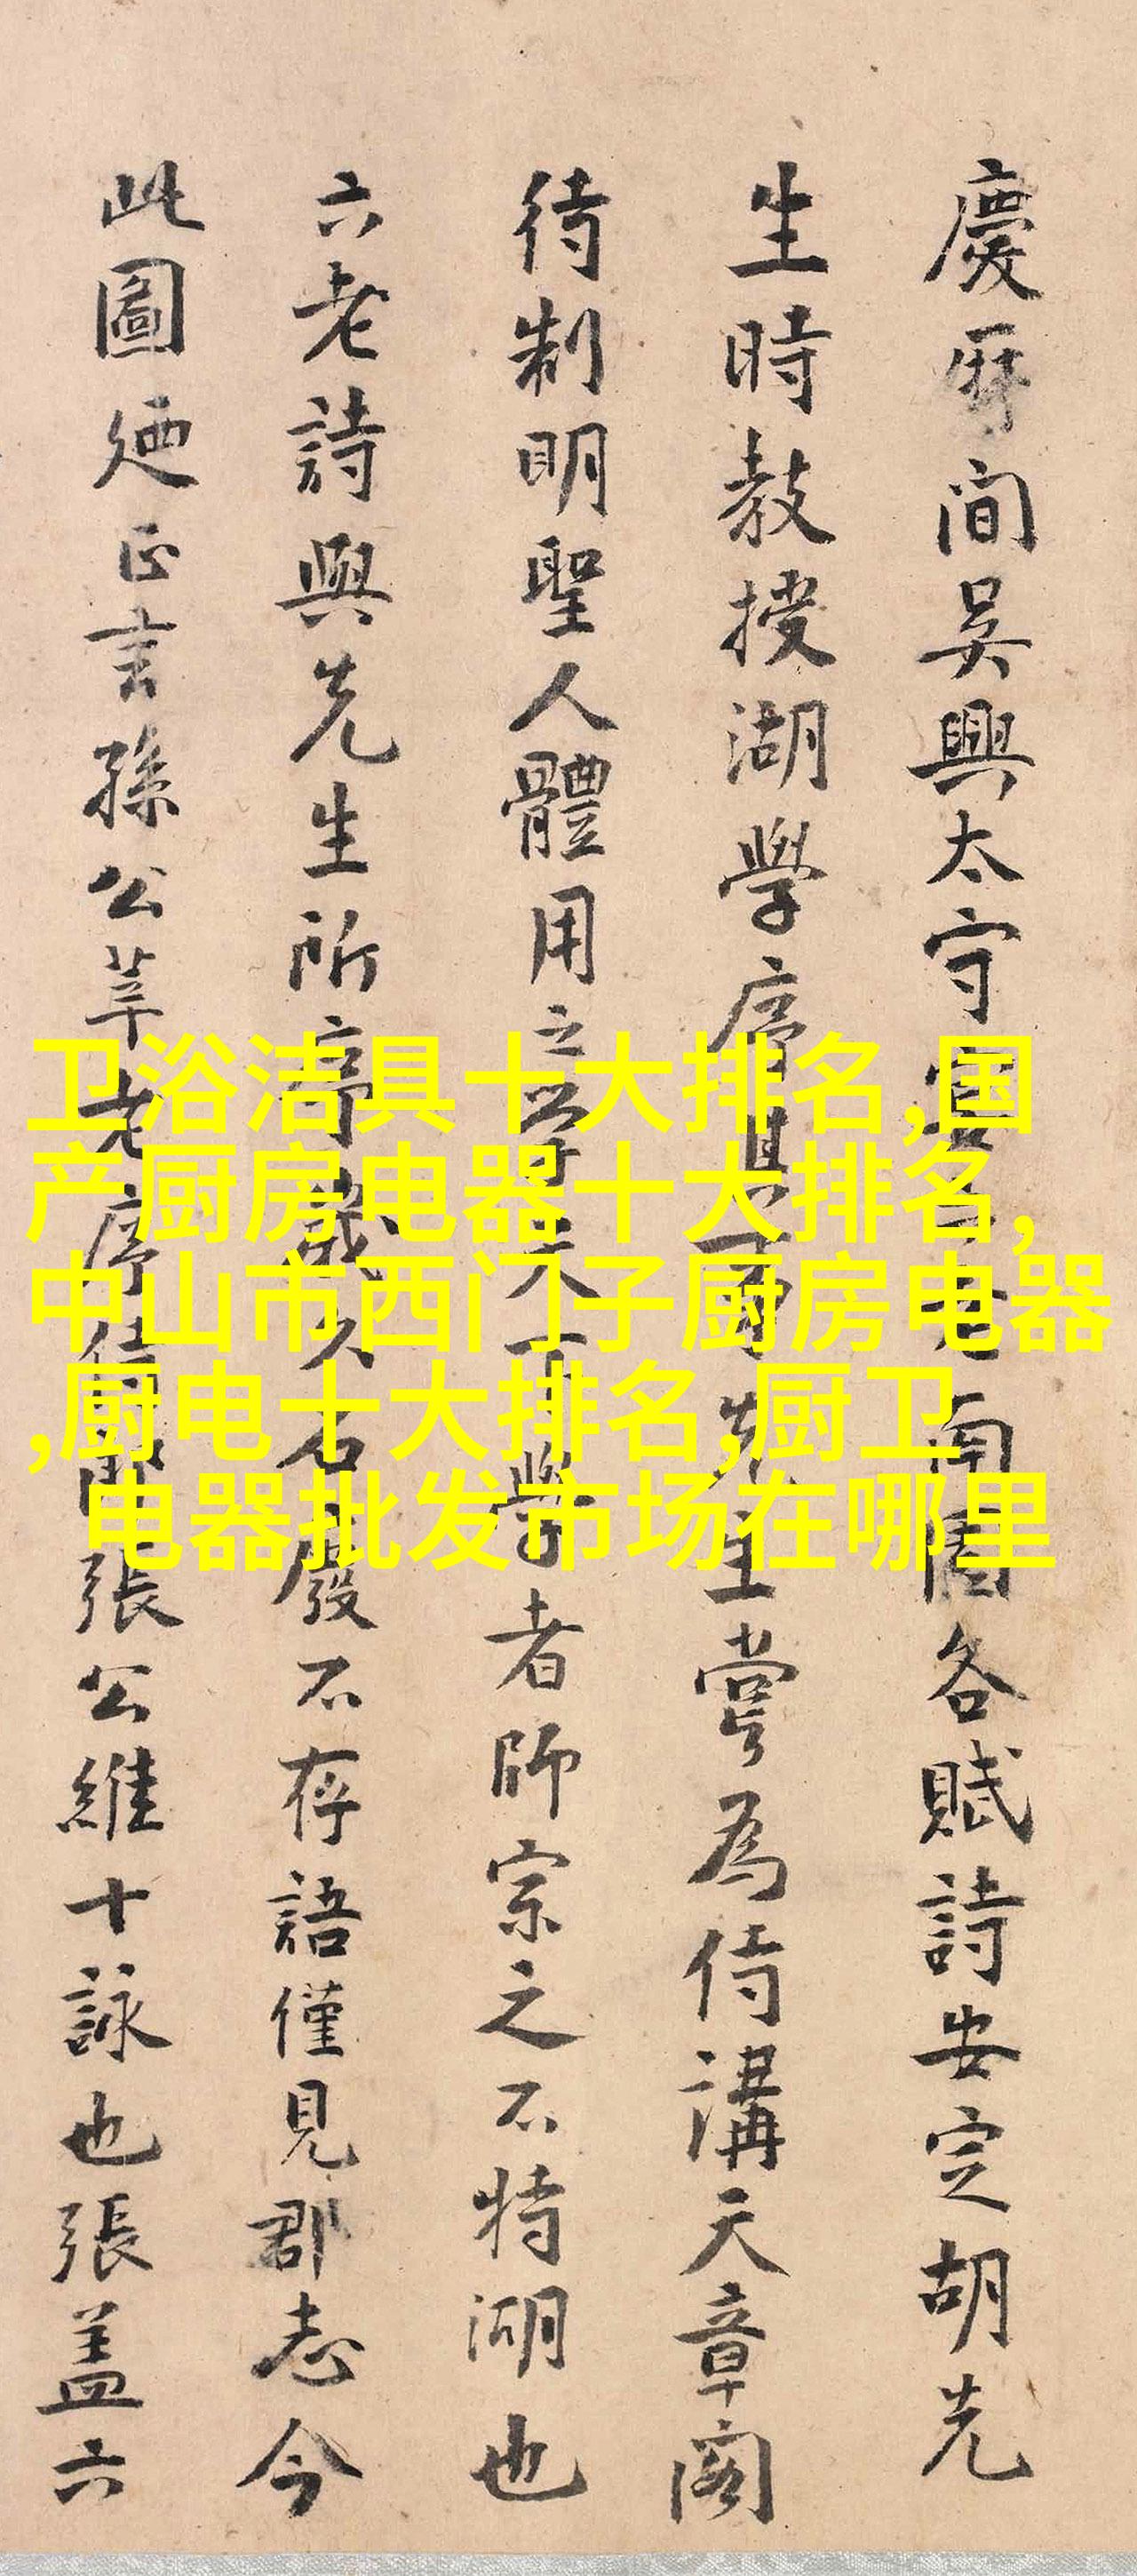 慶曆間吳興太守宴六老南園各賦詩安定胡先
生時教授湖學序其首先生嘗為侍講天章閣
待制明聖人體用之學天下學者師宗之不特湖也
六老詩與先生所序歲久石廢不存語僅見郡志今
此圖廼正言孫公莘老序侍郎張公維十詠也張蓋六
卫浴洁具十大排名,国
产厨房电器十大排名,
中山市西门子厨房电器
,厨电十大排名,厨卫
电器批发市场在哪里